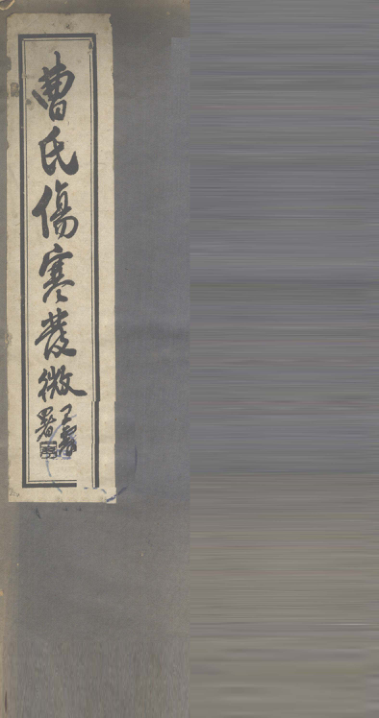 曹氏傷寒發微
署